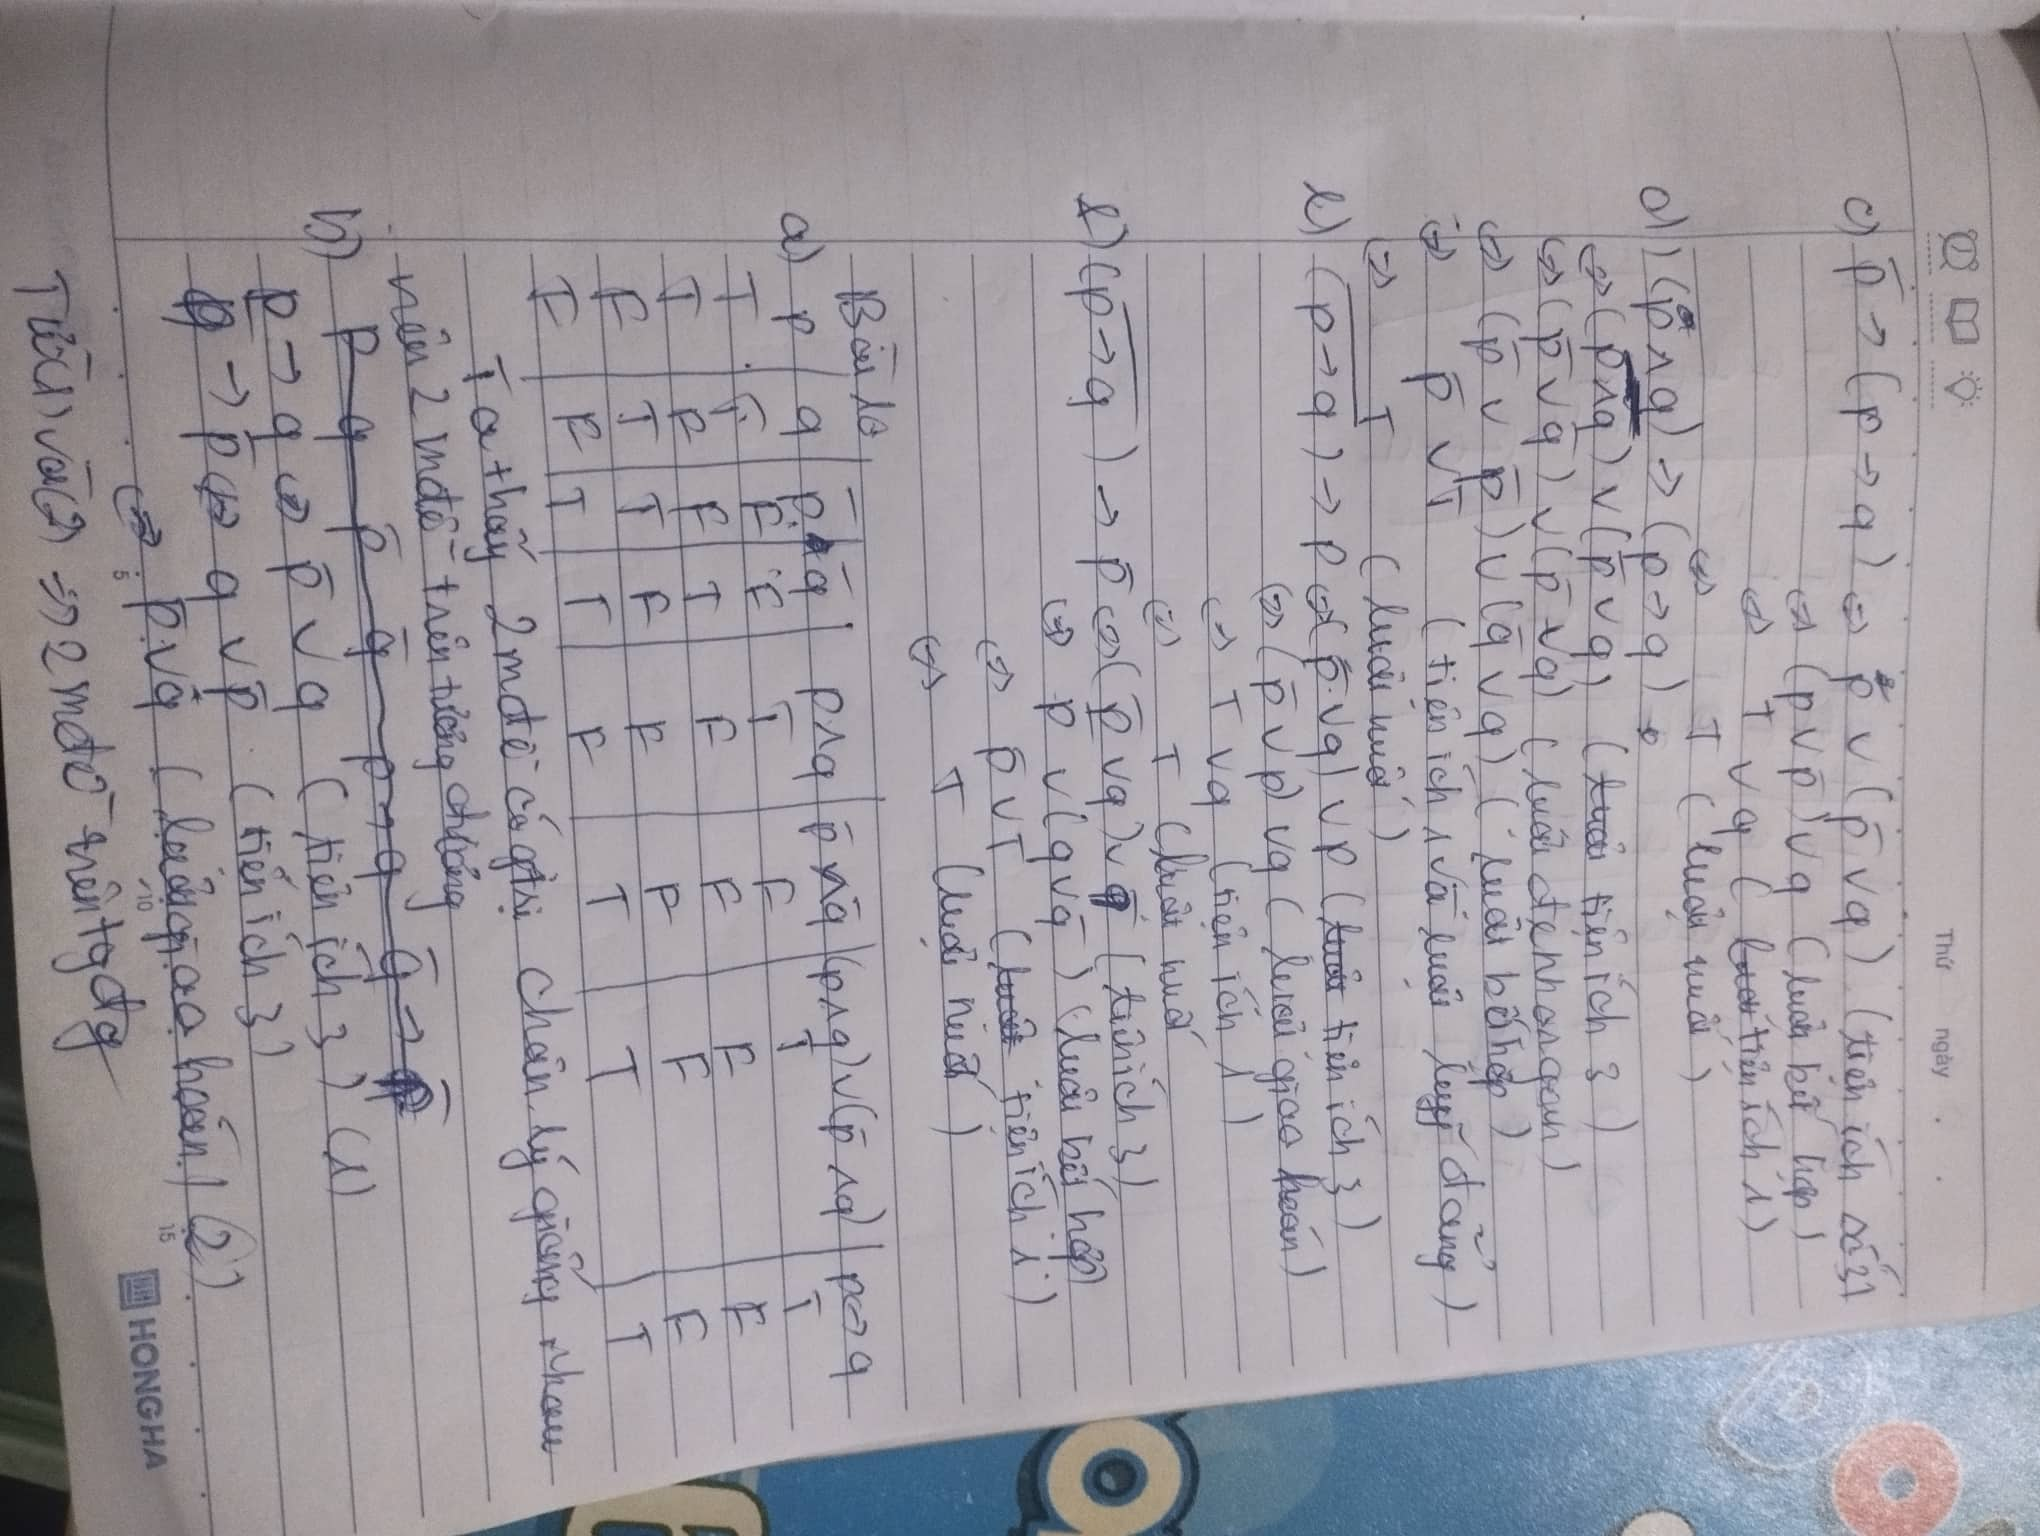 Thứ ngày
c) p̅ → (p → q) ⇔ p v (p̅ v q) (tiện ích số 3)
⇔ (p v p̅) v q (luật kết hợp)
⇔ T v q (tiện ích 1)
⇔ T (luật nuốt)
d) (p ∧ q) → (p → q)
⇔ (p̅ ∧ q̅) v (p̅ v q) (tiện ích 3)
⇔ (p̅ v q̅) v (p̅ v q) (luật đenhoocgan)
⇔ (p̅ v p̅) v (q̅ v q) (luật kết hợp)
⇔ p̅ v T (tiện ích 1 và luật luỹ đẳng)
⇔ T (luật nuốt)
e) (p → q) → p ⇔ (p̅ v q) v p (tiện ích 3)
⇔ (p̅ v p) v q (luật giao hoán)
⇔ T v q (tiện ích 1)
⇔ T (luật nuốt
f) (p → q) → p̅ ⇔ (p̅ v q) v q̅ (tiện ích 3)
⇔ p v (q v q̅) (luật kết hợp)
⇔ p̅ v T (tiện ích 1)
⇔ T (luật nuốt)
Bài 10
a) p q p̅ q̅ p∧q p̅∧q̅ (p∧q) v (p̅∧q̅) p↔q
T T F F T F T T
T F F T F F F F
F T T F F F F F
F F T T F T T T
Ta thấy 2 mđề có gtrị chân lý giống nhau
nên 2 mđề trên tương đương
b) p q p̅ q̅ p→q q̅→p̅
p → q ⇔ p̅ v q (tiện ích 3) (1)
q̅ → p̅ ⇔ q v p̅ (tiện ích 3)
⇔ p̅ v q (luật giao hoán) (2)
Từ (1) và (2) ⇒ 2 mđề trên tgđg
5 10 15
HONGHA